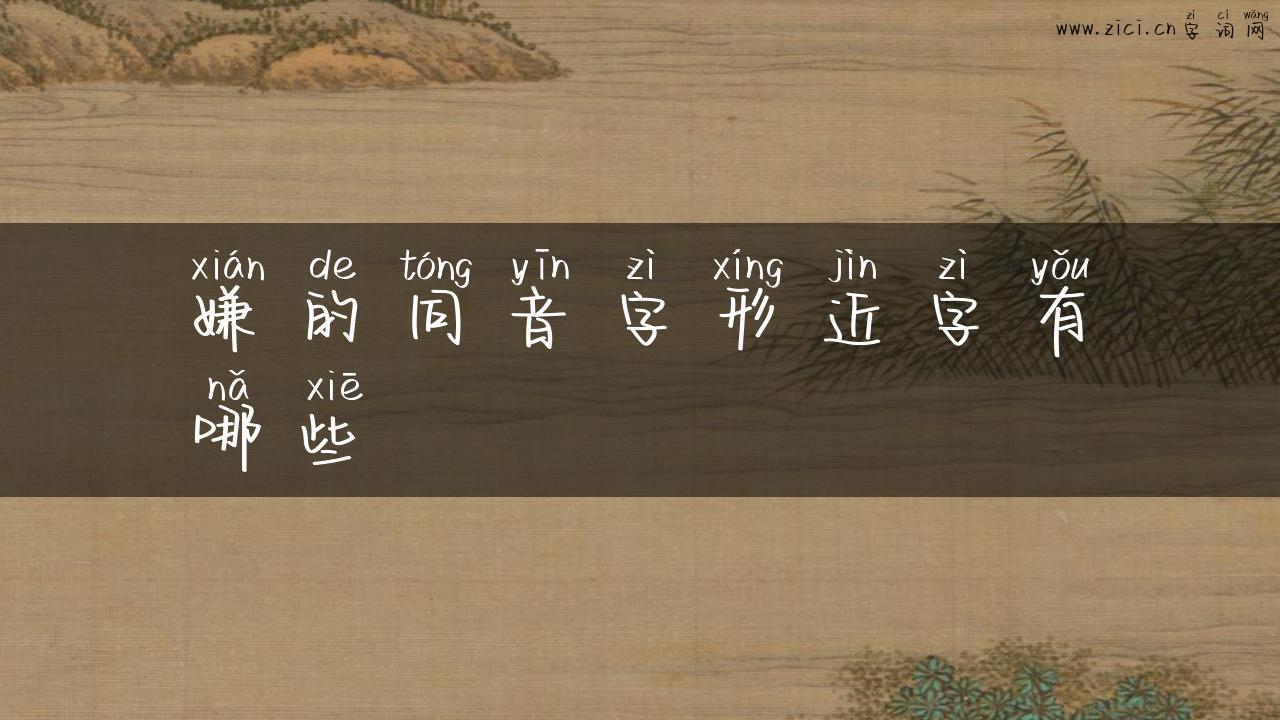 zì cí wǎng
www.zici.cn 字 词 网
xián de tóng yīn zì xíng jìn zì yǒu
嫌 的 同 音 字 形 近 字 有
nǎ xiē
哪 些